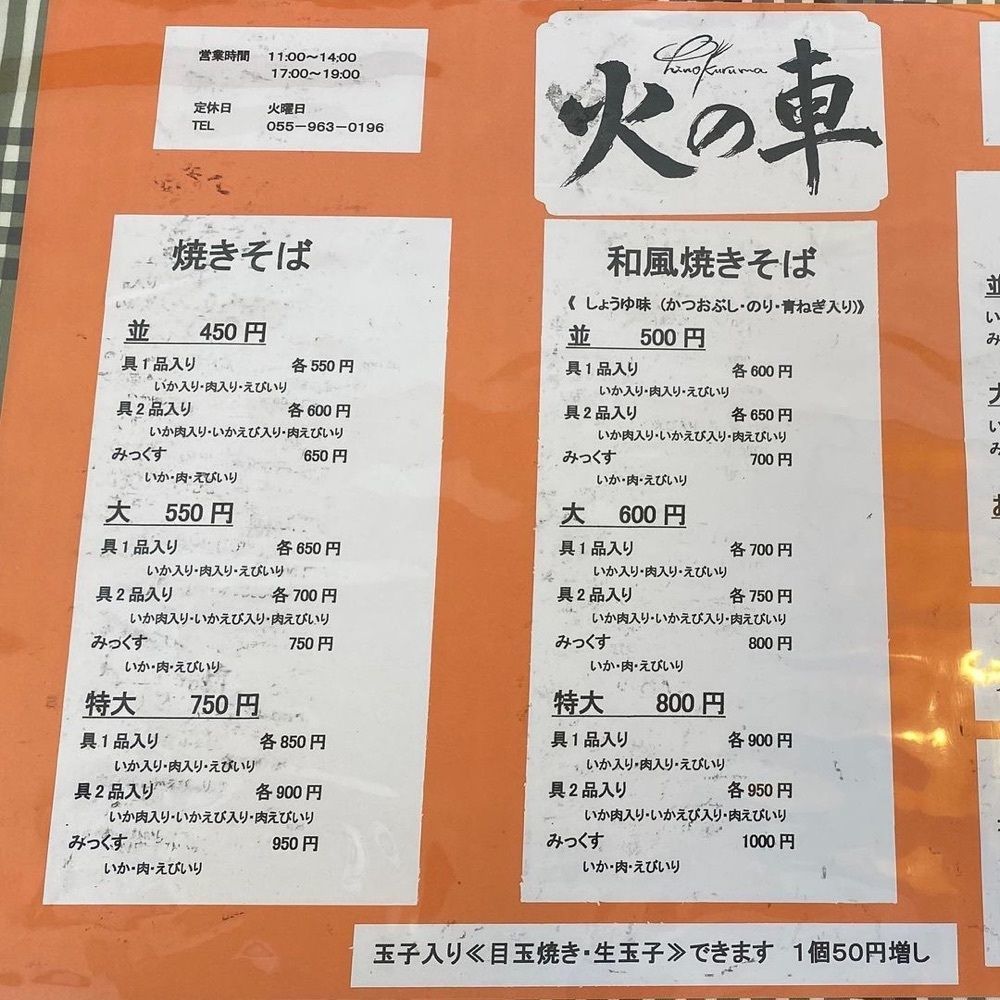 営業時間 11:00～14:00
17:00～19:00
定休日 火曜日
TEL 055-963-0196
hinokuruma
火の車
焼きそば
並 450円
具1品入り 各550円
いか入り・肉入り・えびいり
具2品入り 各600円
いか肉入り・いかえび入り・肉えびいり
みっくす 650円
いか・肉・えびいり
大 550円
具1品入り 各650円
いか入り・肉入り・えびいり
具2品入り 各700円
いか肉入り・いかえび入り・肉えびいり
みっくす 750円
いか・肉・えびいり
特大 750円
具1品入り 各850円
いか入り・肉入り・えびいり
具2品入り 各900円
いか肉入り・いかえび入り・肉えびいり
みっくす 950円
いか・肉・えびいり
和風焼きそば
《 しょうゆ味 (かつおぶし・のり・青ねぎ入り)》
並 500円
具1品入り 各600円
いか入り・肉入り・えびいり
具2品入り 各650円
いか肉入り・いかえび入り・肉えびいり
みっくす 700円
いか・肉・えびいり
大 600円
具1品入り 各700円
いか入り・肉入り・えびいり
具2品入り 各750円
いか肉入り・いかえび入り・肉えびいり
みっくす 800円
いか・肉・えびいり
特大 800円
具1品入り 各900円
いか入り・肉入り・えびいり
具2品入り 各950円
いか肉入り・いかえび入り・肉えびいり
みっくす 1000円
いか・肉・えびいり
玉子入り≪目玉焼き・生玉子≫できます 1個50円増し
並
い
み
大
い
み